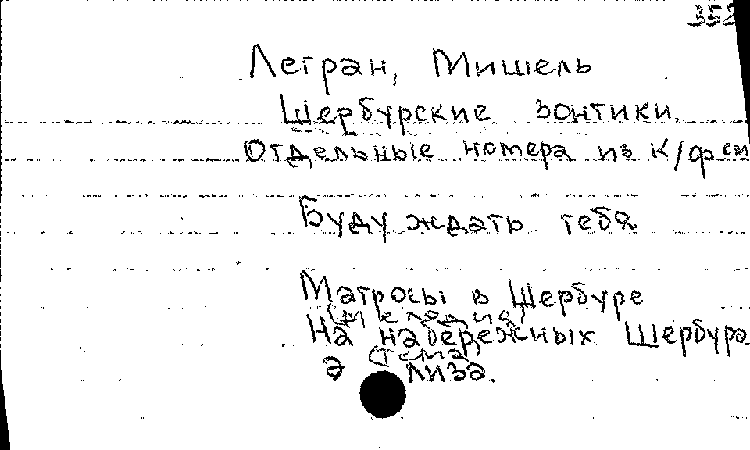 352
Легран, Мишель
Шербурские зонтики
Отдельные номера из к/ф
Буду ждать тебя
Матросы в Шербуре
(мелодия)
На набережных Шербура
(тема)
лиза.